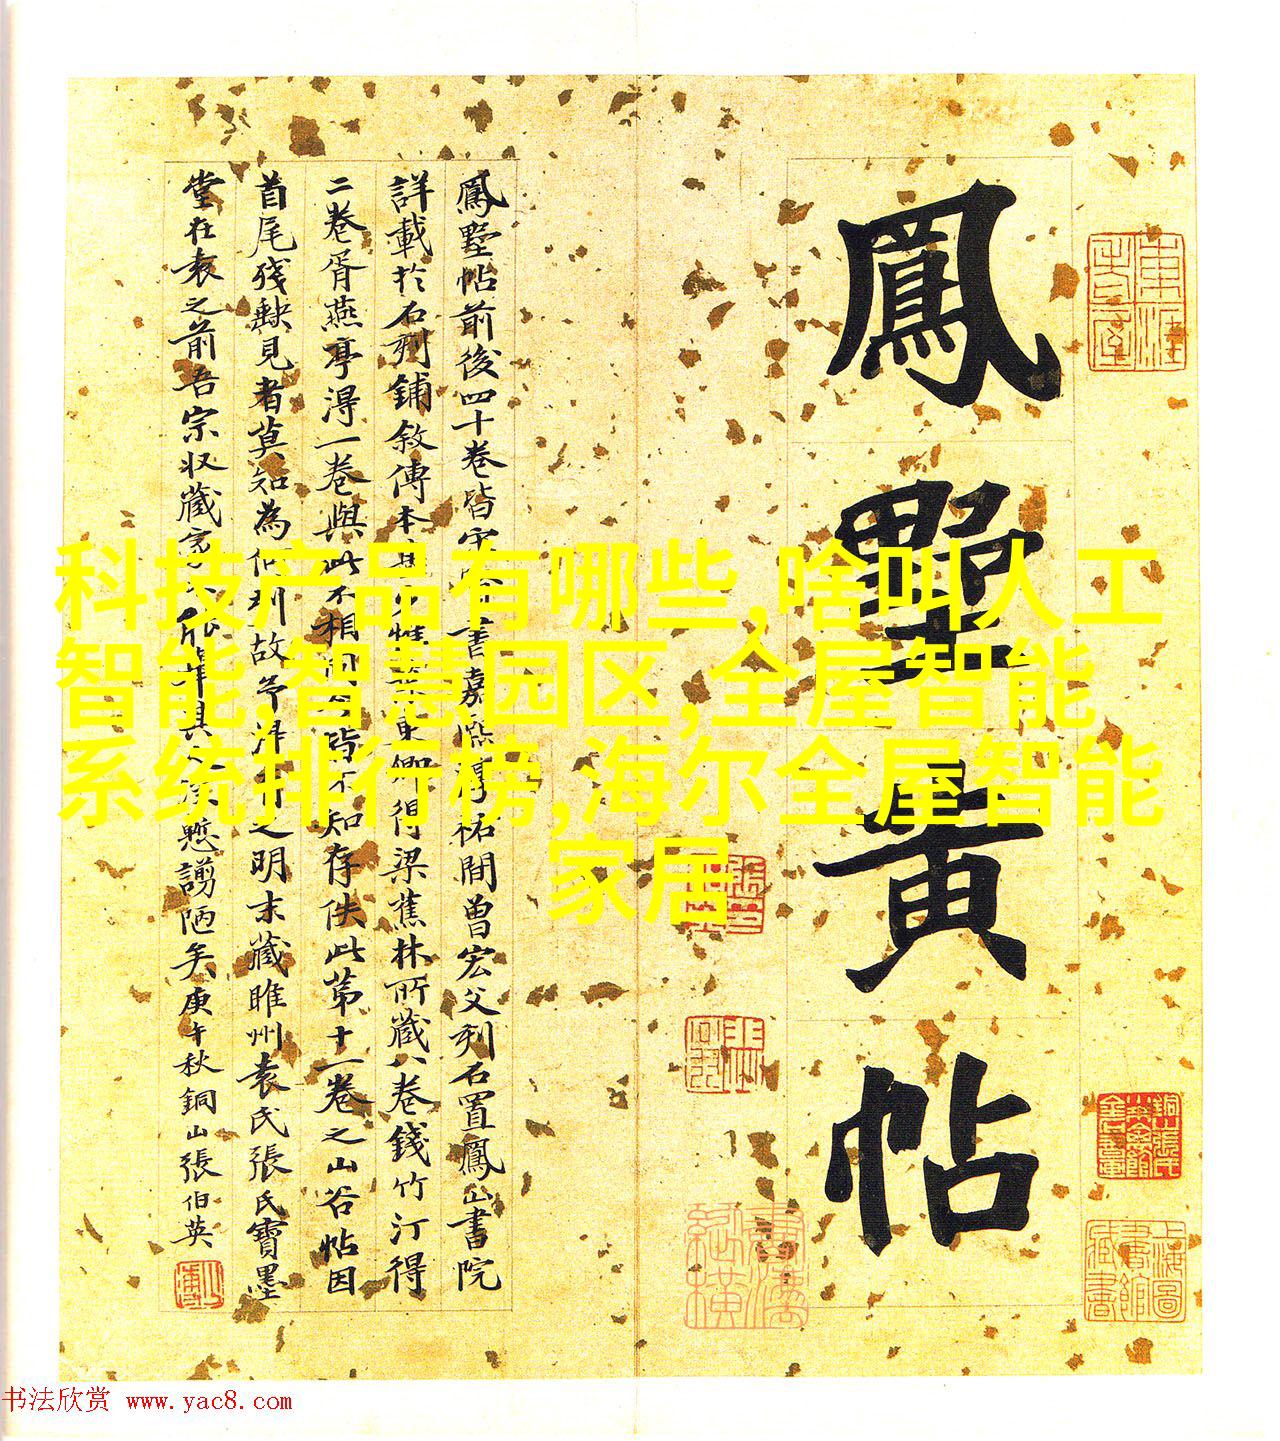 鳳墅黃帖
鳳墅帖前後四十卷皆宋
書嘉熙淳祐間曾宏父刻石置鳳山書院
詳載於石刻鋪敘傳本
東卿得梁蕉林所藏八卷錢竹汀得
二卷胥燕亭得一卷與此不相同
皆不知存佚此第十一卷之山谷帖因
首尾殘缺見者莫知為何刻故
之明末藏睢州袁氏張氏寶墨
堂在袁之前吾宗収藏
謭陋矣庚午秋銅山張伯英
科技产品有哪些,啥叫人工
智能,智慧园区,全屋智能
系统排行榜,海尔全屋智能
家居
上海圖書館藏書
书法欣赏 www.yac8.com